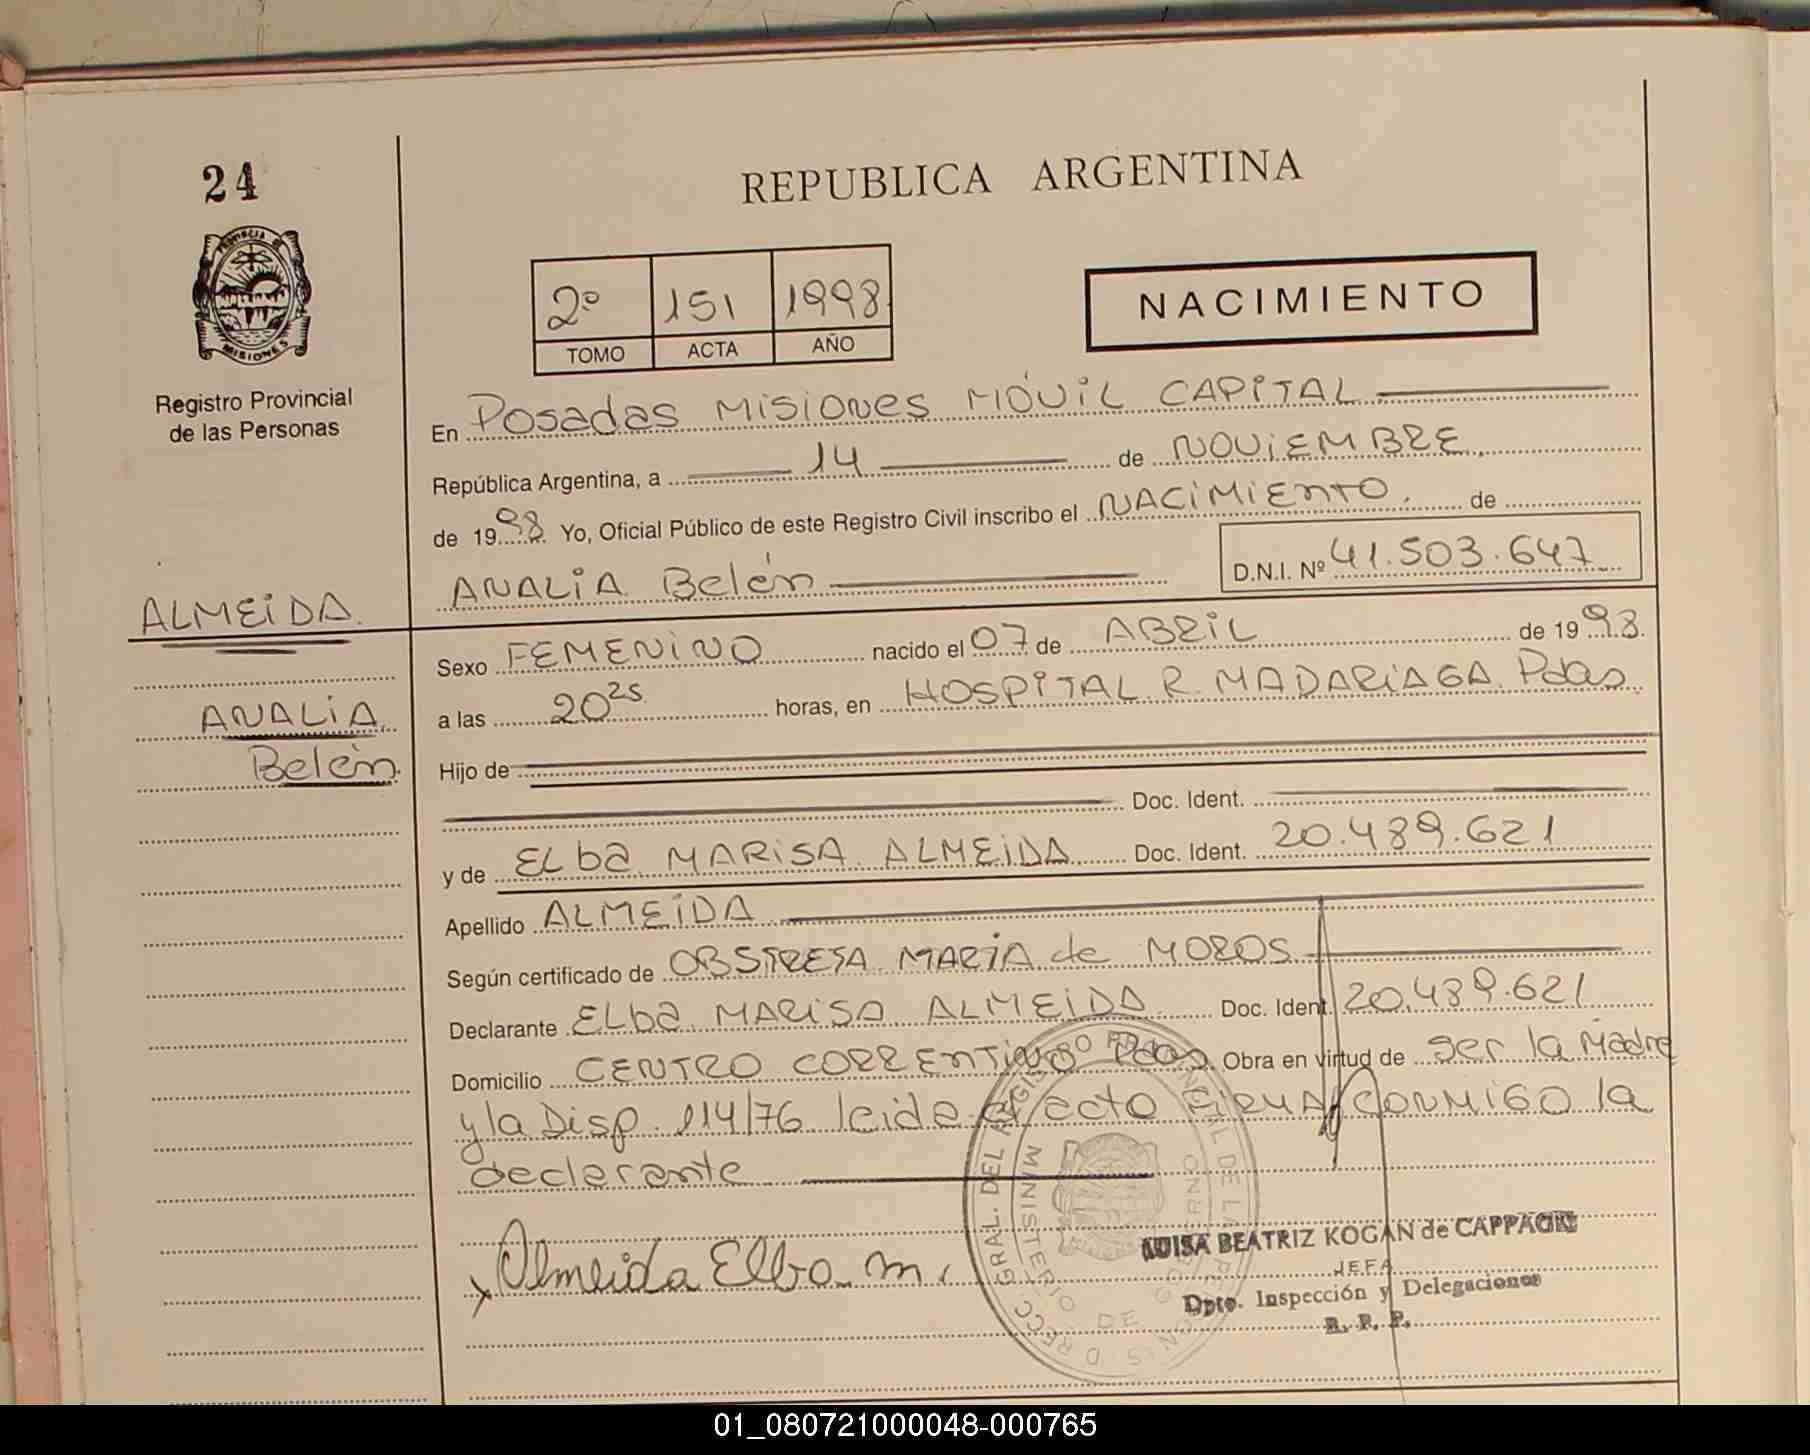 24
REPUBLICA ARGENTINA
PROVINCIA DE
MISIONES
Registro Provincial
de las Personas
2º 151 1998
TOMO ACTA AÑO
NACIMIENTO
En Posadas MISIONES MÓVIL CAPITAL
República Argentina, a 14 de NOVIEMBRE
de 1998 Yo, Oficial Público de este Registro Civil inscribo el NACIMIENTO. de
ANALIA Belén D.N.I. Nº 41.503.647
ALMEIDA.
ANALIA
Belén
Sexo FEMENINO nacido el 07 de ABRIL de 1998.
a las 20 25 horas, en HOSPITAL R. MADARIAGA Pdas
Hijo de
Doc. Ident.
y de ELba MARISA ALMEIDA Doc. Ident. 20.489.621
Apellido ALMEIDA
Según certificado de OBSTRETA MARIA de MOROS
Declarante ELba MARISA ALMEIDA Doc. Ident. 20.489.621
Domicilio CENTRO CORRENTINO Pdas Obra en virtud de ser la Madre
y la Disp. 114/76 leida el acto FIRMA CONMIGO la
declarante
Almeida Elba m.
LUISA BEATRIZ KOGAN de CAPPAGLI
JEFA
Dpto. Inspección y Delegaciones
R. P. P.
DIRECC. GRAL. DEL REGISTRO PROVINCIAL DE LAS PERSONAS
MINISTERIO DE GOBIERNO
01_080721000048-000765